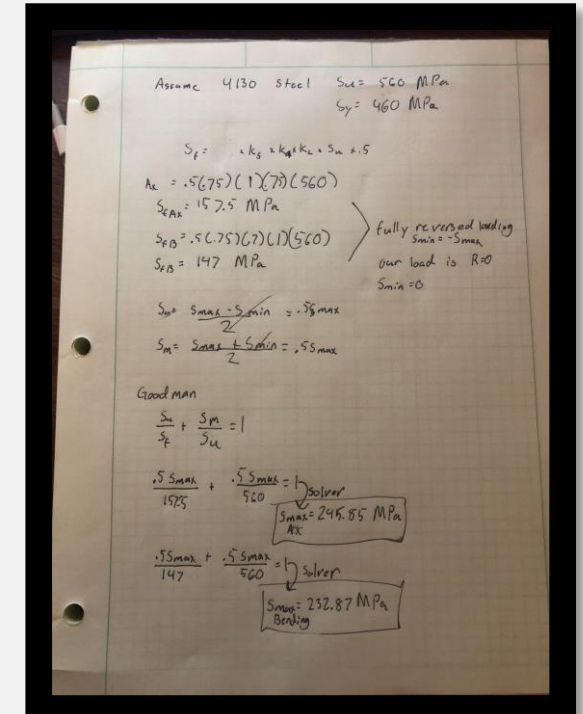 Assume 4130 Steel Su = 560 MPa
Sy = 460 MPa
Sf = * ks * kq * kL * Su * .5
Ax = .5(.75)(1)(.75)(560)
SfAx = 157.5 MPa
SfB = .5(.75)(.7)(1)(560)
SfB = 147 MPa
fully reversed loading
Smin = -Smax
our load is R=0
Smin = 0
Smax - Smin / 2 = .5Smax
Sm = Smax + Smin / 2 = .5Smax
Goodman
Sa/Sf + Sm/Su = 1
.5 Smax/157.5 + .5 Smax/560 = 1
Solver
Smax = 245.85 MPa
Ax
.5Smax/147 + .5 Smax/560 = 1
Solver
Smax = 232.87 MPa
Bending